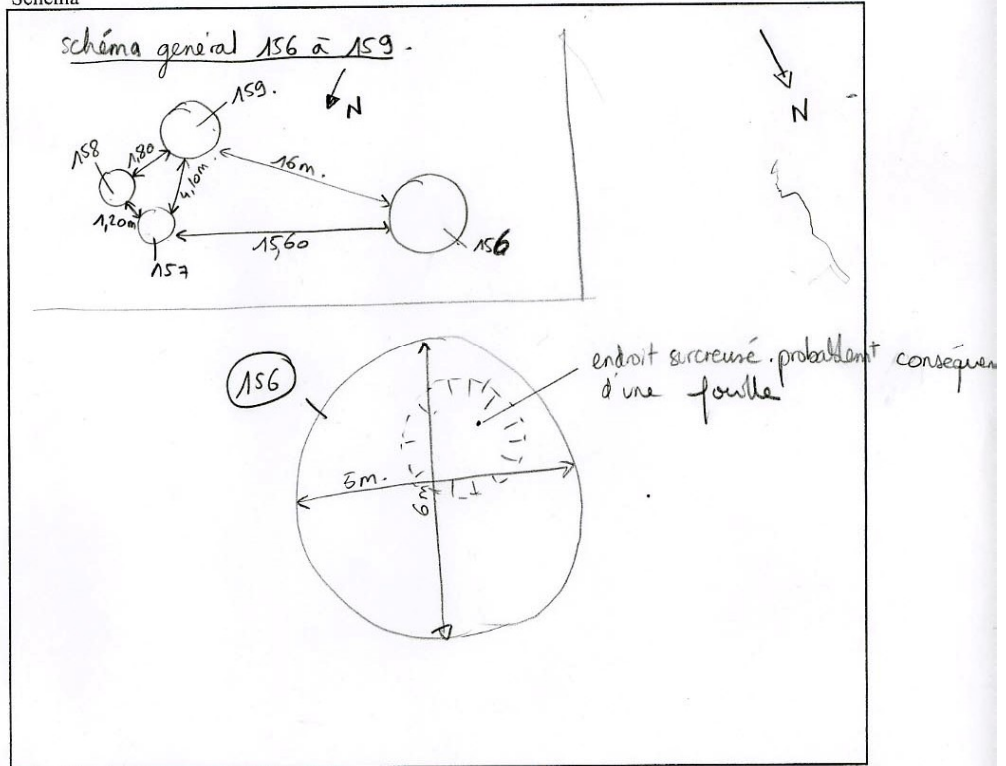 Schéma
schéma général 156 à 159.
N
159.
158
1,80
16m.
4,10m.
1,20m
15,60
156
157
N
156
endroit surcreusé. probablemt conséquen
d'une fouille
5m.
6m